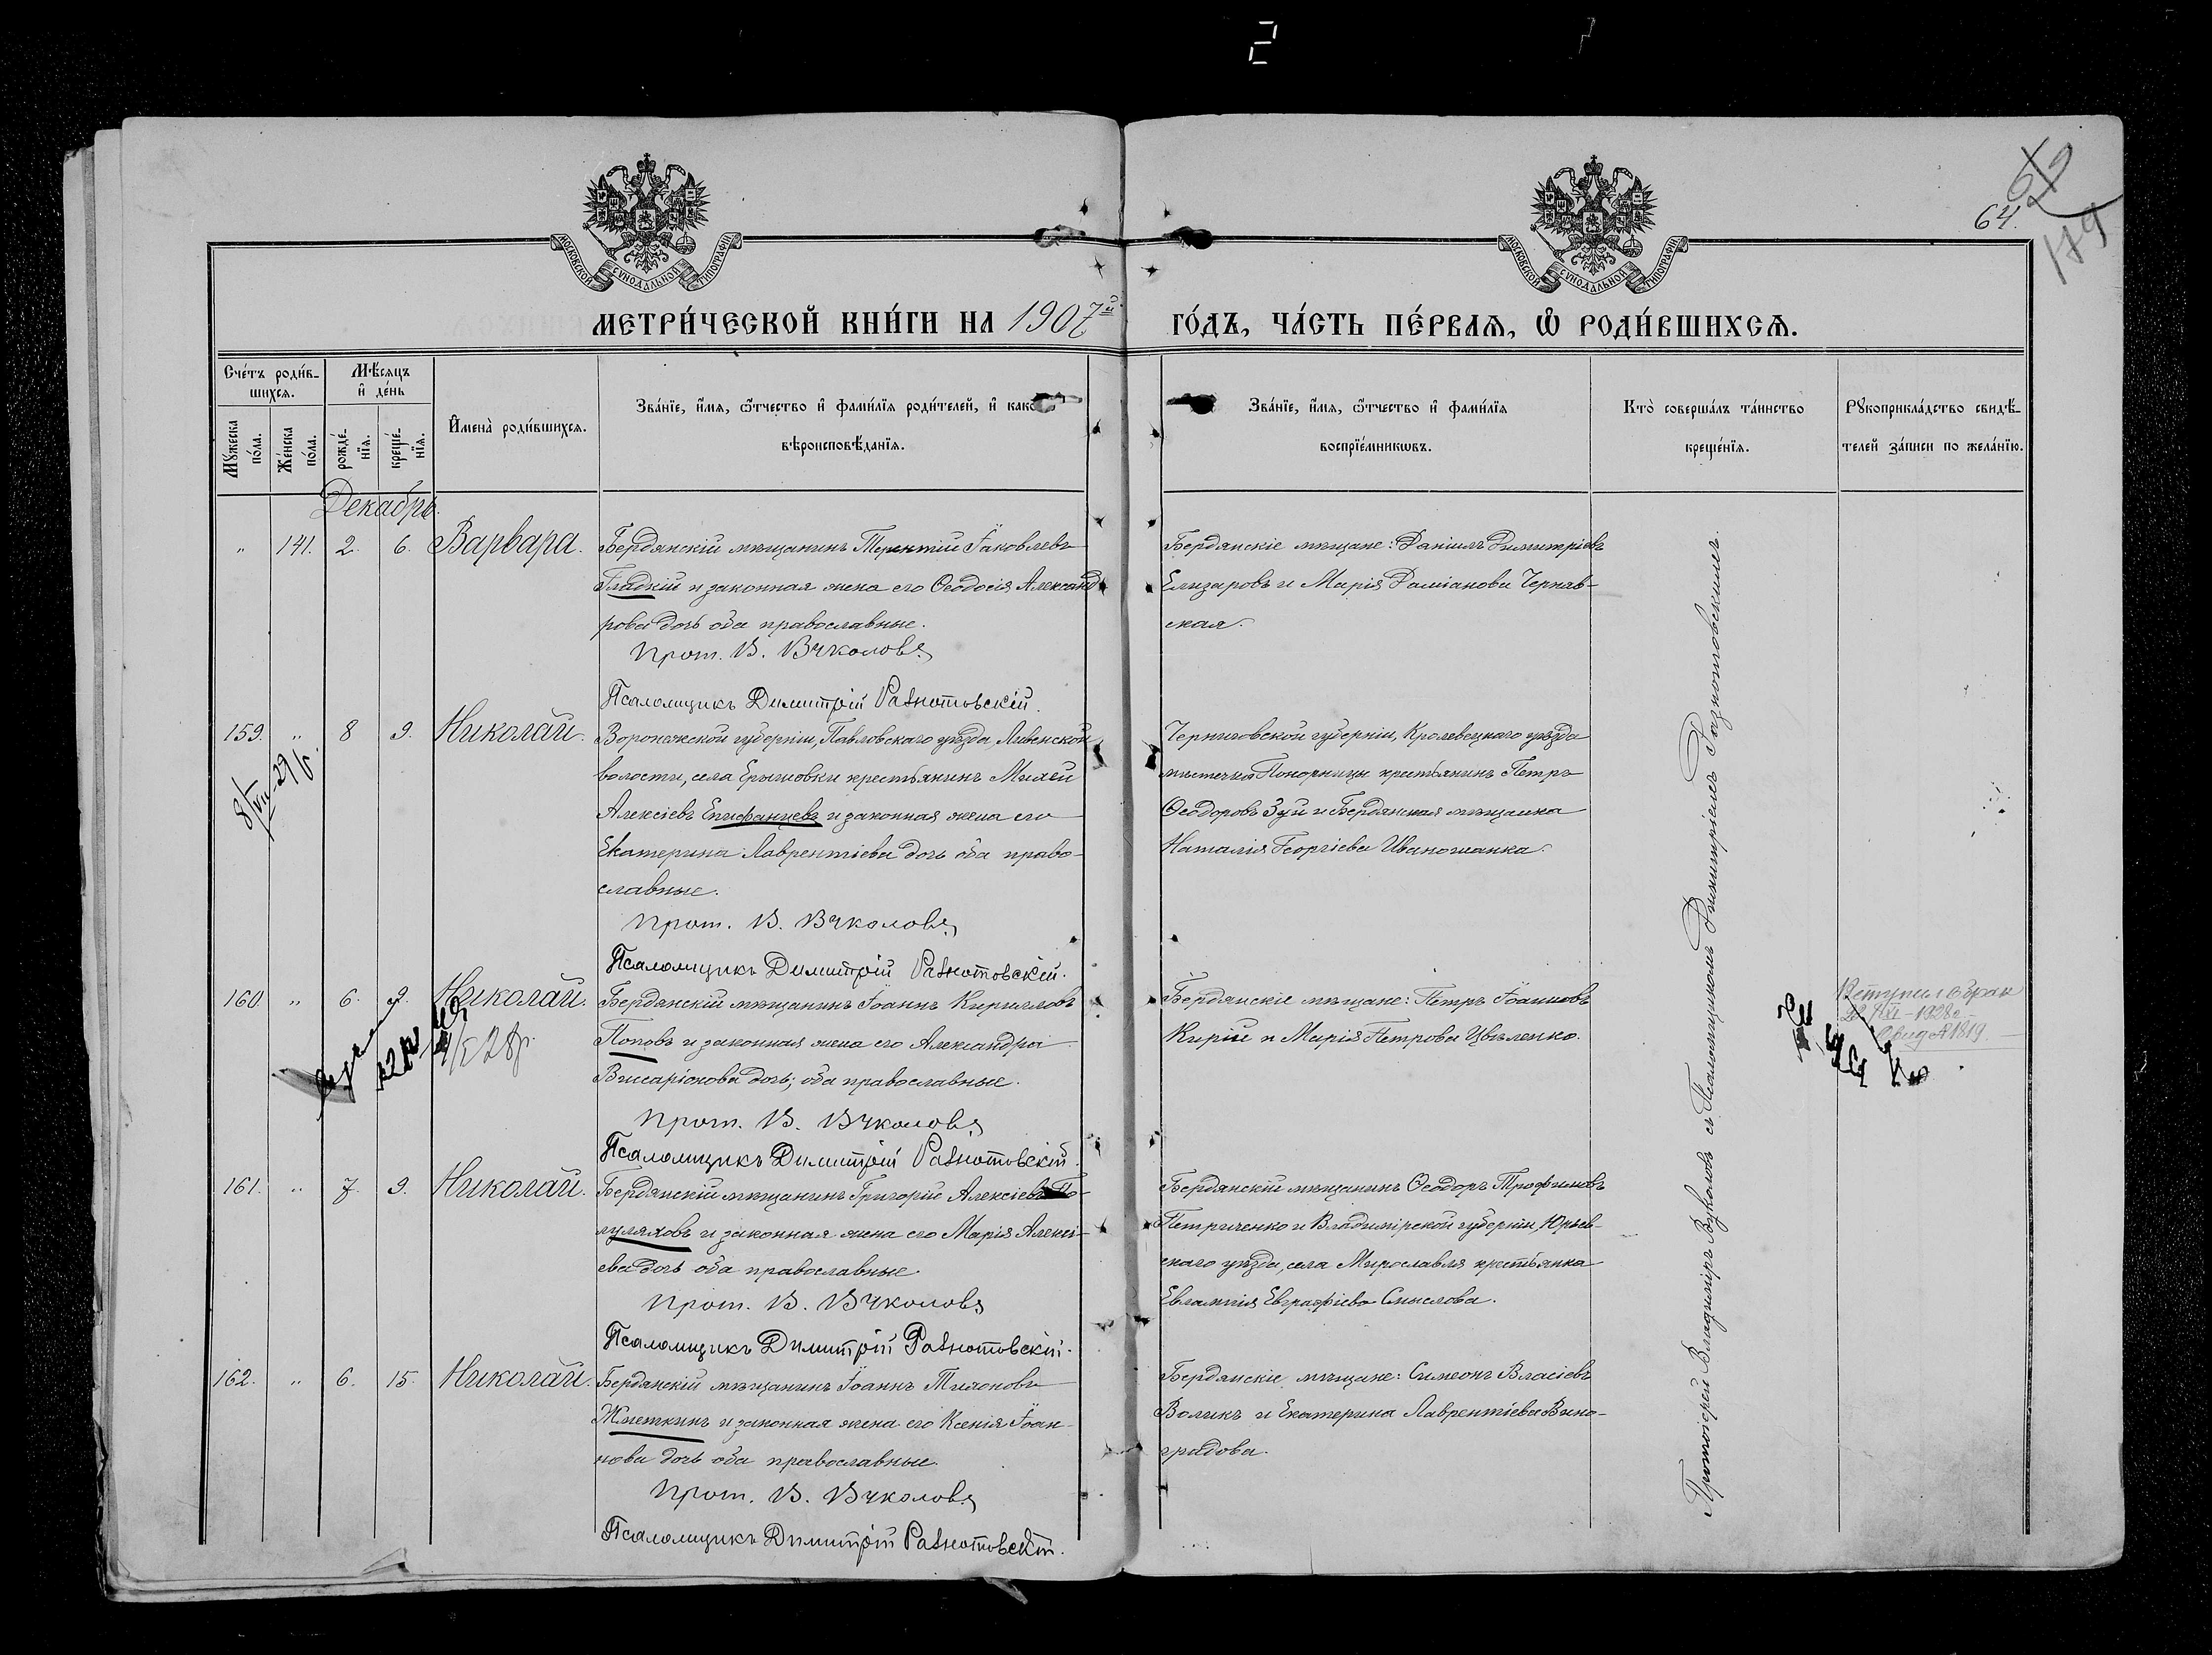 2
64.
179
МОСКОВСКОЙ СѴНОДАЛЬНОЙ ТИПОГРАФІИ
МОСКОВСКОЙ СѴНОДАЛЬНОЙ ТИПОГРАФІИ
МЕТРИ́ЧЕСКОЙ КНИ́ГИ НА 1907й ГО́ДЪ, ЧА́СТЬ ПЕ́РВАѦ, Ѡ҆ РОДИ́ВШИХСѦ.
Сче́тъ роди́в-
шихсѧ.
Мꙋ́жеска по́ла.
Же́нска по́ла.
Мѣ́сяцъ
и҆ де́нь
рожде́-нїѧ.
креще́-нїѧ.
И҆мена̀ роди́вшихсѧ.
Зва́нїе, и҆́мѧ, ѻ҆́тчество и҆ фами́лїѧ роди́телей, и҆ како
вѣроисповѣ́данїѧ.
Зва́нїе, и҆́мѧ, ѻ҆́тчество и҆ фами́лїѧ
воспрїе́мникѡвъ.
Кто̀ соверша́лъ та́инство
креще́нїѧ.
Рꙋкоприкла́дство свидѣ́-
телей за́писи по жела́нїю.
Декабрь.
" 141. 2. 6. Варвара.
Бердянскій мѣщанинъ Терентій Іаковлевъ
Гладкій и законная жена его Ѳеодосія Александ
рова дочь оба православные.
Прот. В. Вуколовъ
Псаломщикъ Димитрій Разнотовскій.
Бердянскіе мѣщане: Даніилъ Димитріевъ
Елизаровъ и Марія Даміанова Черняв-
ская.
159. " 8 9. Николай.
8/VIII-29 г.
Воронежской губерніи, Павловскаго уѣзда, Ливенской
волости, села Ерышовки крестьянинъ Михей
Алексіевъ Епифанцевъ и законная жена его
Екатерина Лаврентіева дочь оба право-
славные.
Прот. В. Вуколовъ
Псаломщикъ Димитрій Разнотовскій.
Черниговской губерніи, Кролевецкаго уѣзда
мѣстечка Понорницы крестьянинъ Петръ
Ѳеодоровъ Зуй и Бердянская мѣщанка
Наталія Георгіева Иваношанка.
160 " 6. 9. Николай.
28 г.
Бердянскій мѣщанинъ Іоаннъ Кирилловъ
Поповъ и законная жена его Александра
Висаріонова дочь; оба православные.
Прот. В. Вуколовъ
Псаломщикъ Димитрій Разнотовскій.
Бердянскіе мѣщане: Петръ Іоанновъ
Кирій и Марія Петрова Цвѣленко.
Вступил в брак
22/XI-1928 г.
Свид. № 1819
161. " 7. 9. Николай.
Бердянскій мѣщанинъ Григорій Алексіевъ По-
луляховъ и законная жена его Марія Алексі-
ева дочь оба православные.
Прот. В. Вуколовъ
Псаломщикъ Димитрій Разнотовскій.
Бердянскій мѣщанинъ Ѳеодоръ Трофимовъ
Петриченко и Владимірской губерніи, Юрьев-
скаго уѣзда, села Мирославля крестьянка
Евлампія Евграфіева Смыслова.
162. " 6. 15. Николай.
Бердянскій мѣщанинъ Іоаннъ Тихоновъ
Жметкинъ и законная жена его Ксенія Іоан-
нова дочь оба православные.
Прот. В. Вуколовъ
Псаломщикъ Димитрій Разнотовскій.
Бердянскіе мѣщане: Симеонъ Власіевъ
Воликъ и Екатерина Лаврентіева Вино-
градова.
Протоіерей Владиміръ Вуколовъ съ Псаломщикомъ Димитріемъ Разнотовскимъ.